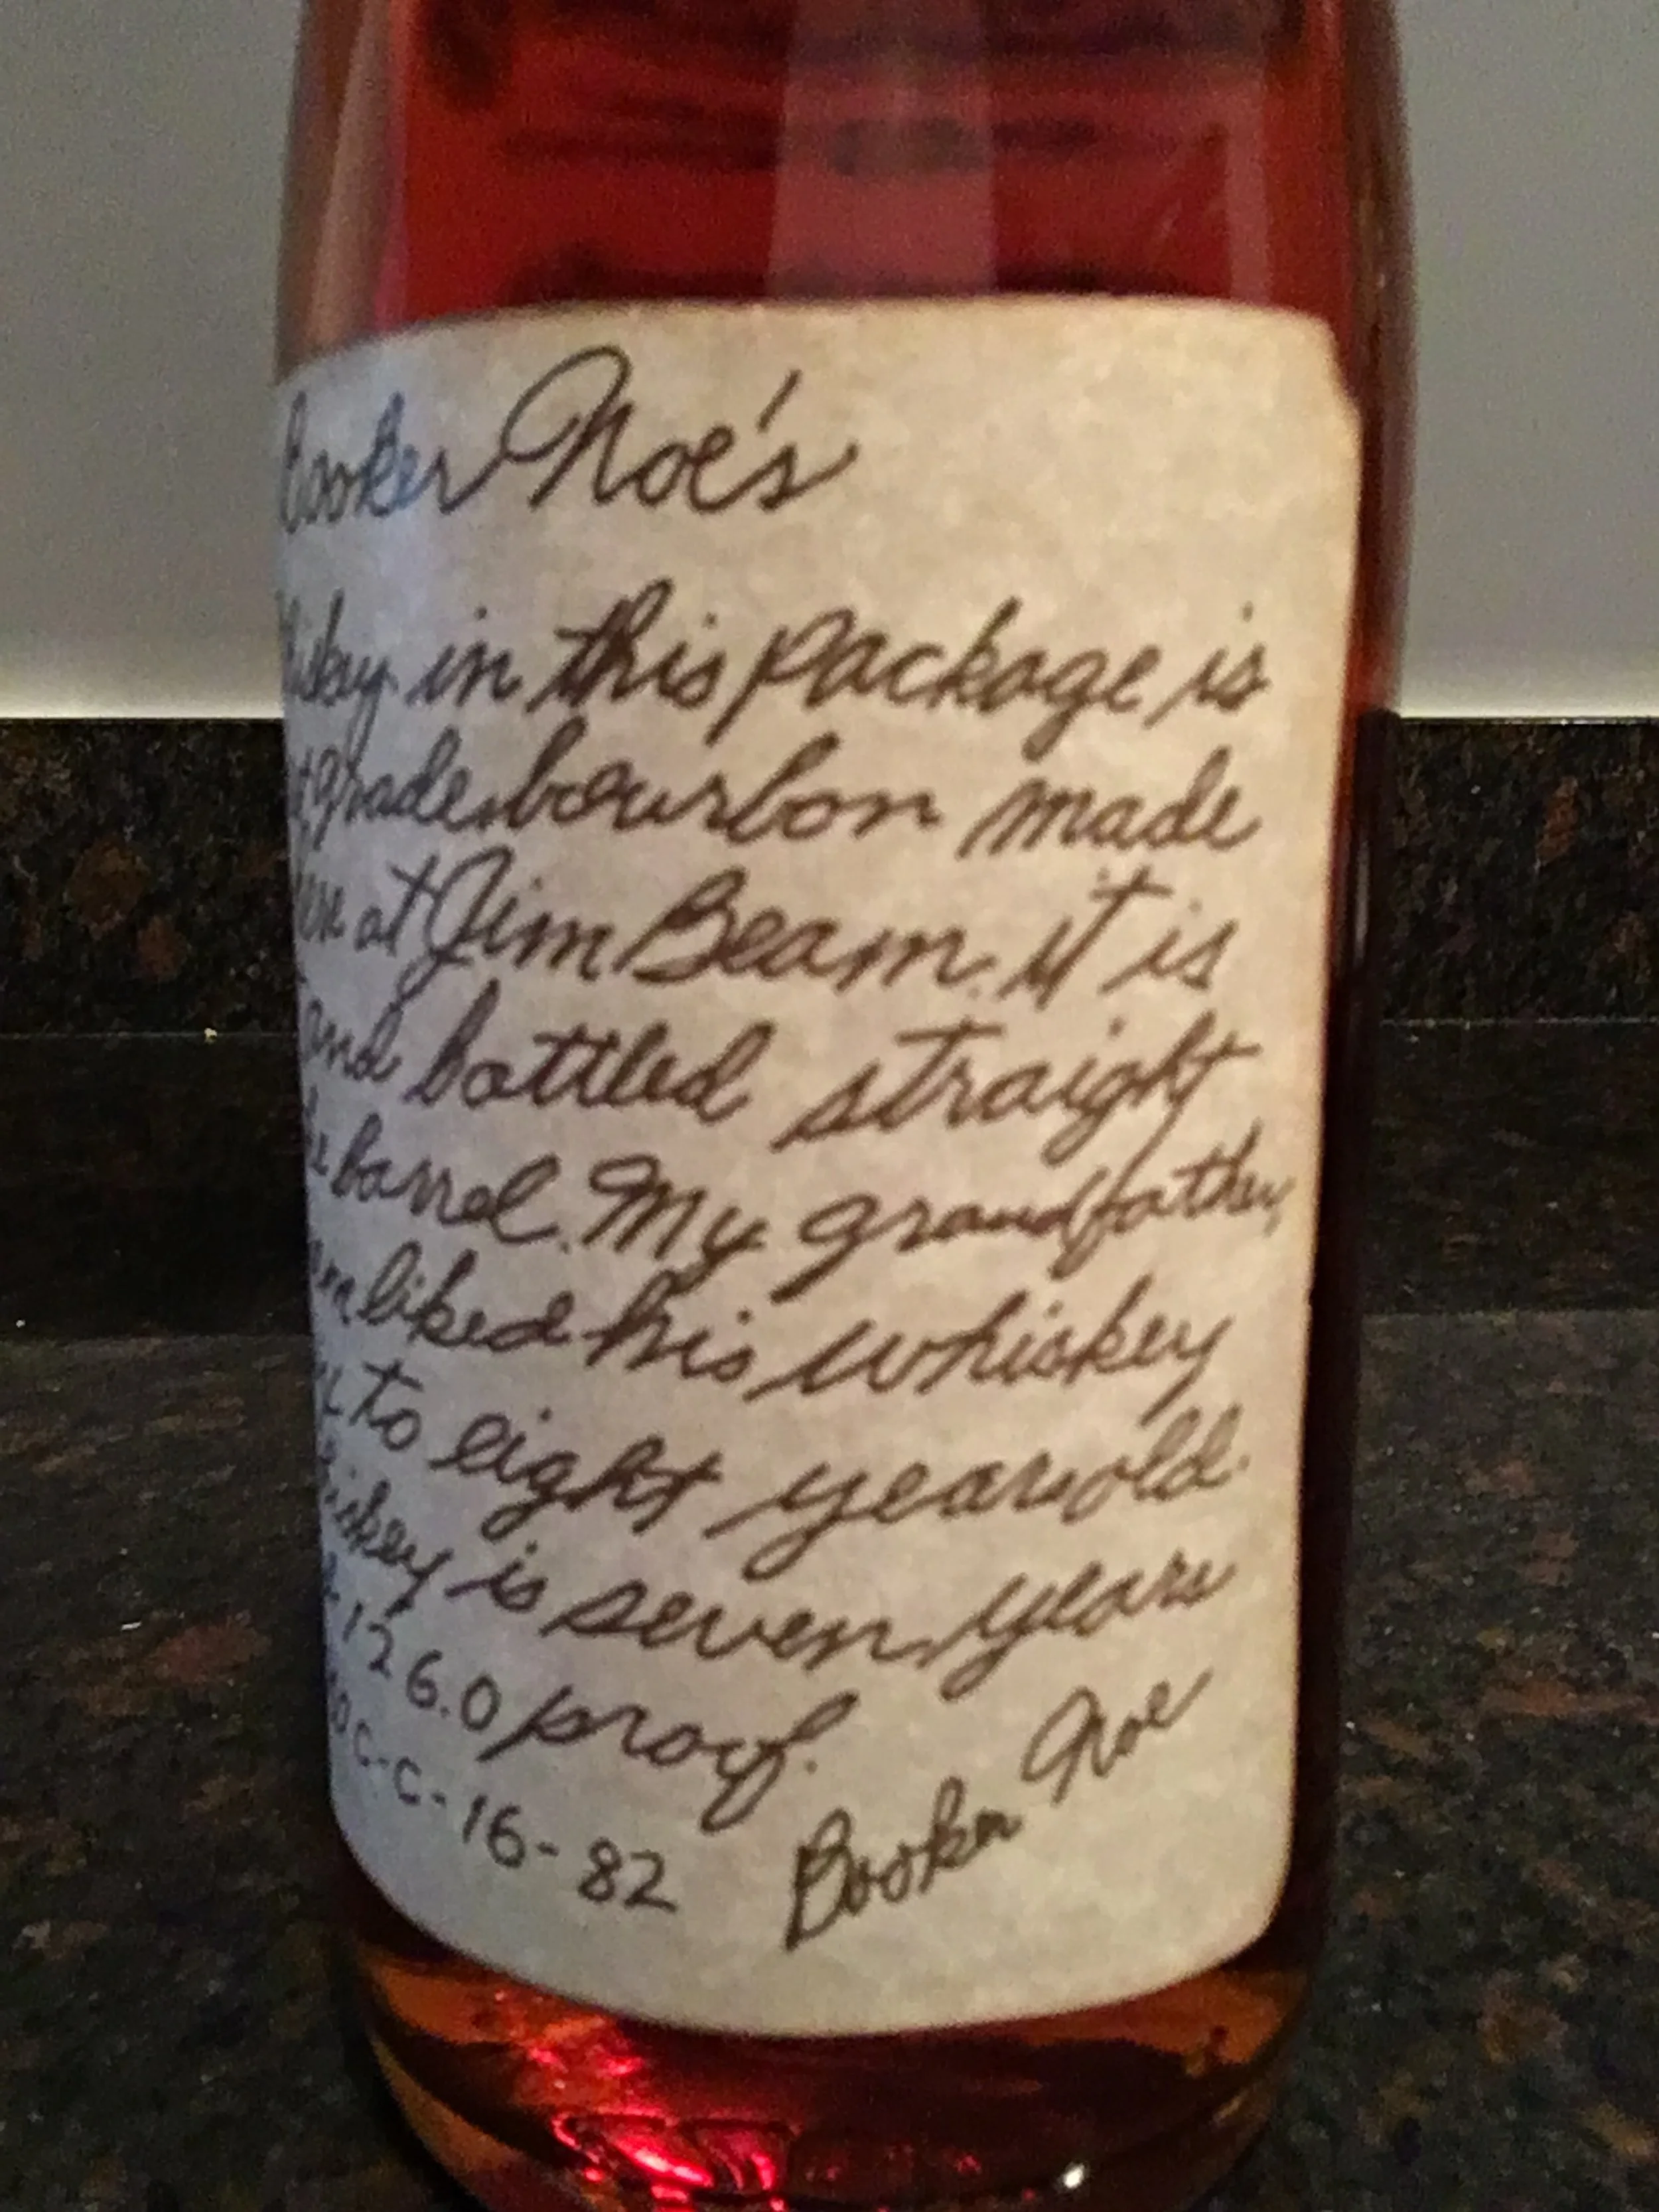 Booker Noe's
in this package is
grade bourbon made
at Jim Beam. it is
and bottled straight
barrel. My grandfather,
liked his whiskey
to eight years old.
is seven years
126.0 proof.
C-C-16-82
Booker Noe